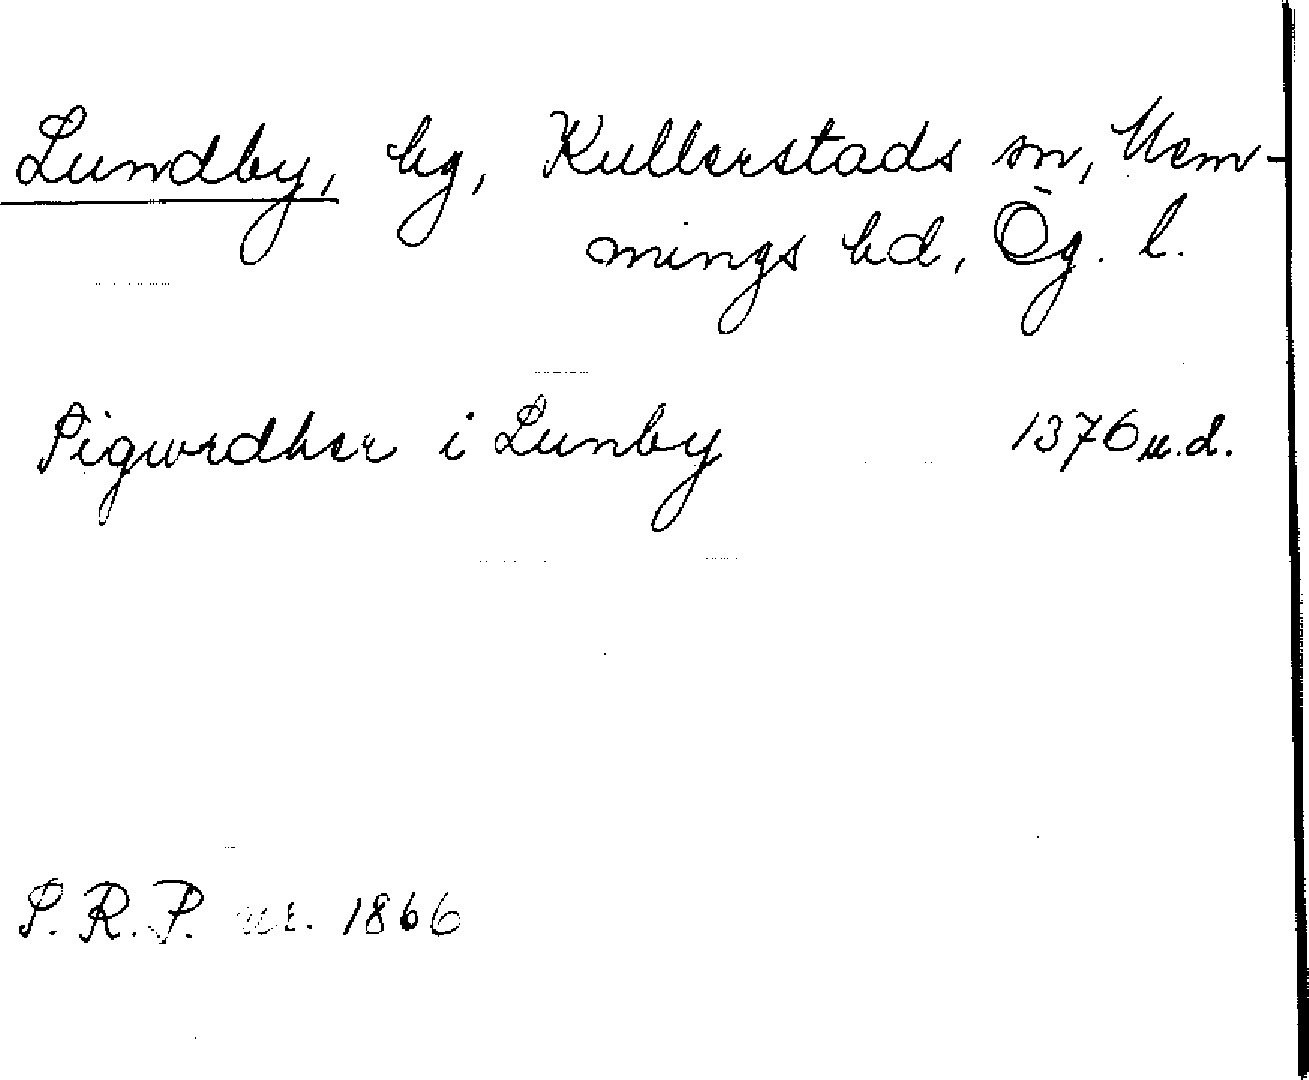 Lundby, by, Kullerstads sn, Mem-
mings hd, Ög. l.
Sigwrdher i Lunby 1376 u.d.
S. R. P. nr. 1866